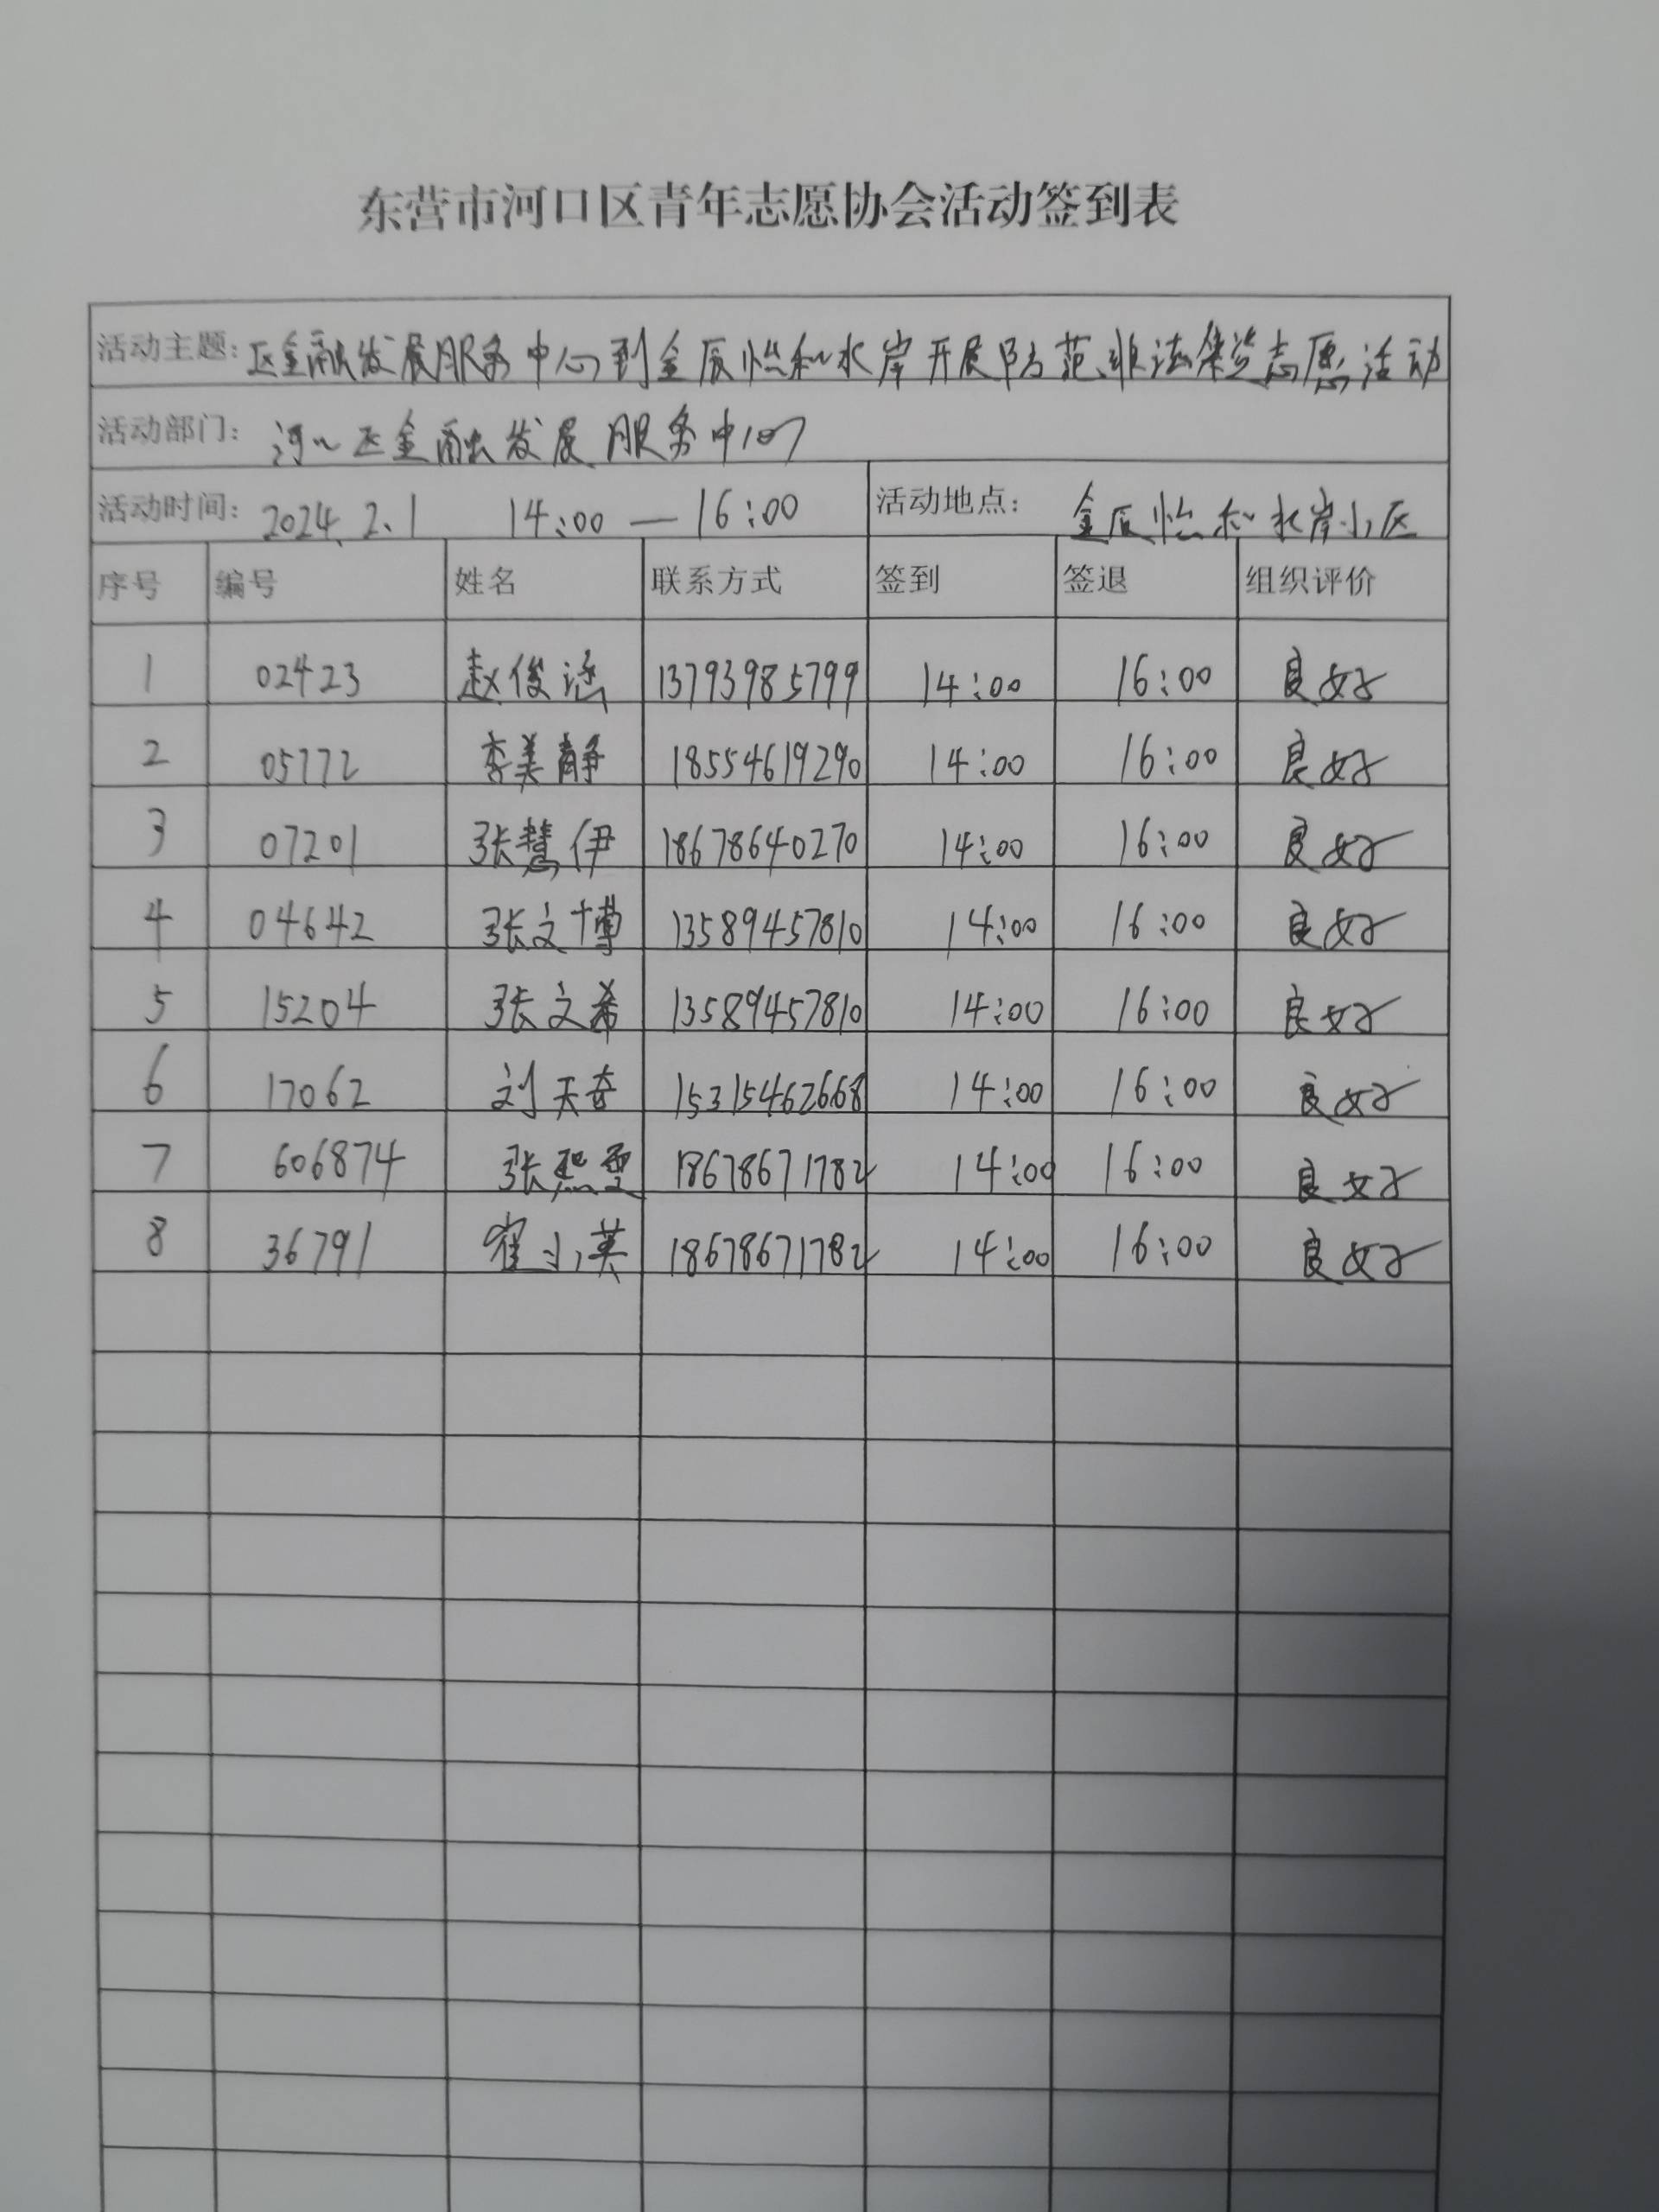 东营市河口区青年志愿协会活动签到表
活动主题: 区金融发展服务中心到金辰怡和水岸开展防范非法集资志愿活动
活动部门: 河口区金融发展服务中心
活动时间: 2024.2.1 14:00—16:00 活动地点: 金辰怡和水岸小区
序号 编号 姓名 联系方式 签到 签退 组织评价
1 02423 赵俊涵 13793985799 14:00 16:00 良好
2 05772 李美静 18554619290 14:00 16:00 良好
3 07201 张慧伊 18678640270 14:00 16:00 良好
4 04642 张文博 13589457810 14:00 16:00 良好
5 15204 张文希 13589457810 14:00 16:00 良好
6 17062 刘天奇 15315462668 14:00 16:00 良好
7 606874 张熙 18678671782 14:00 16:00 良好
8 36791 崔小英 18678671782 14:00 16:00 良好